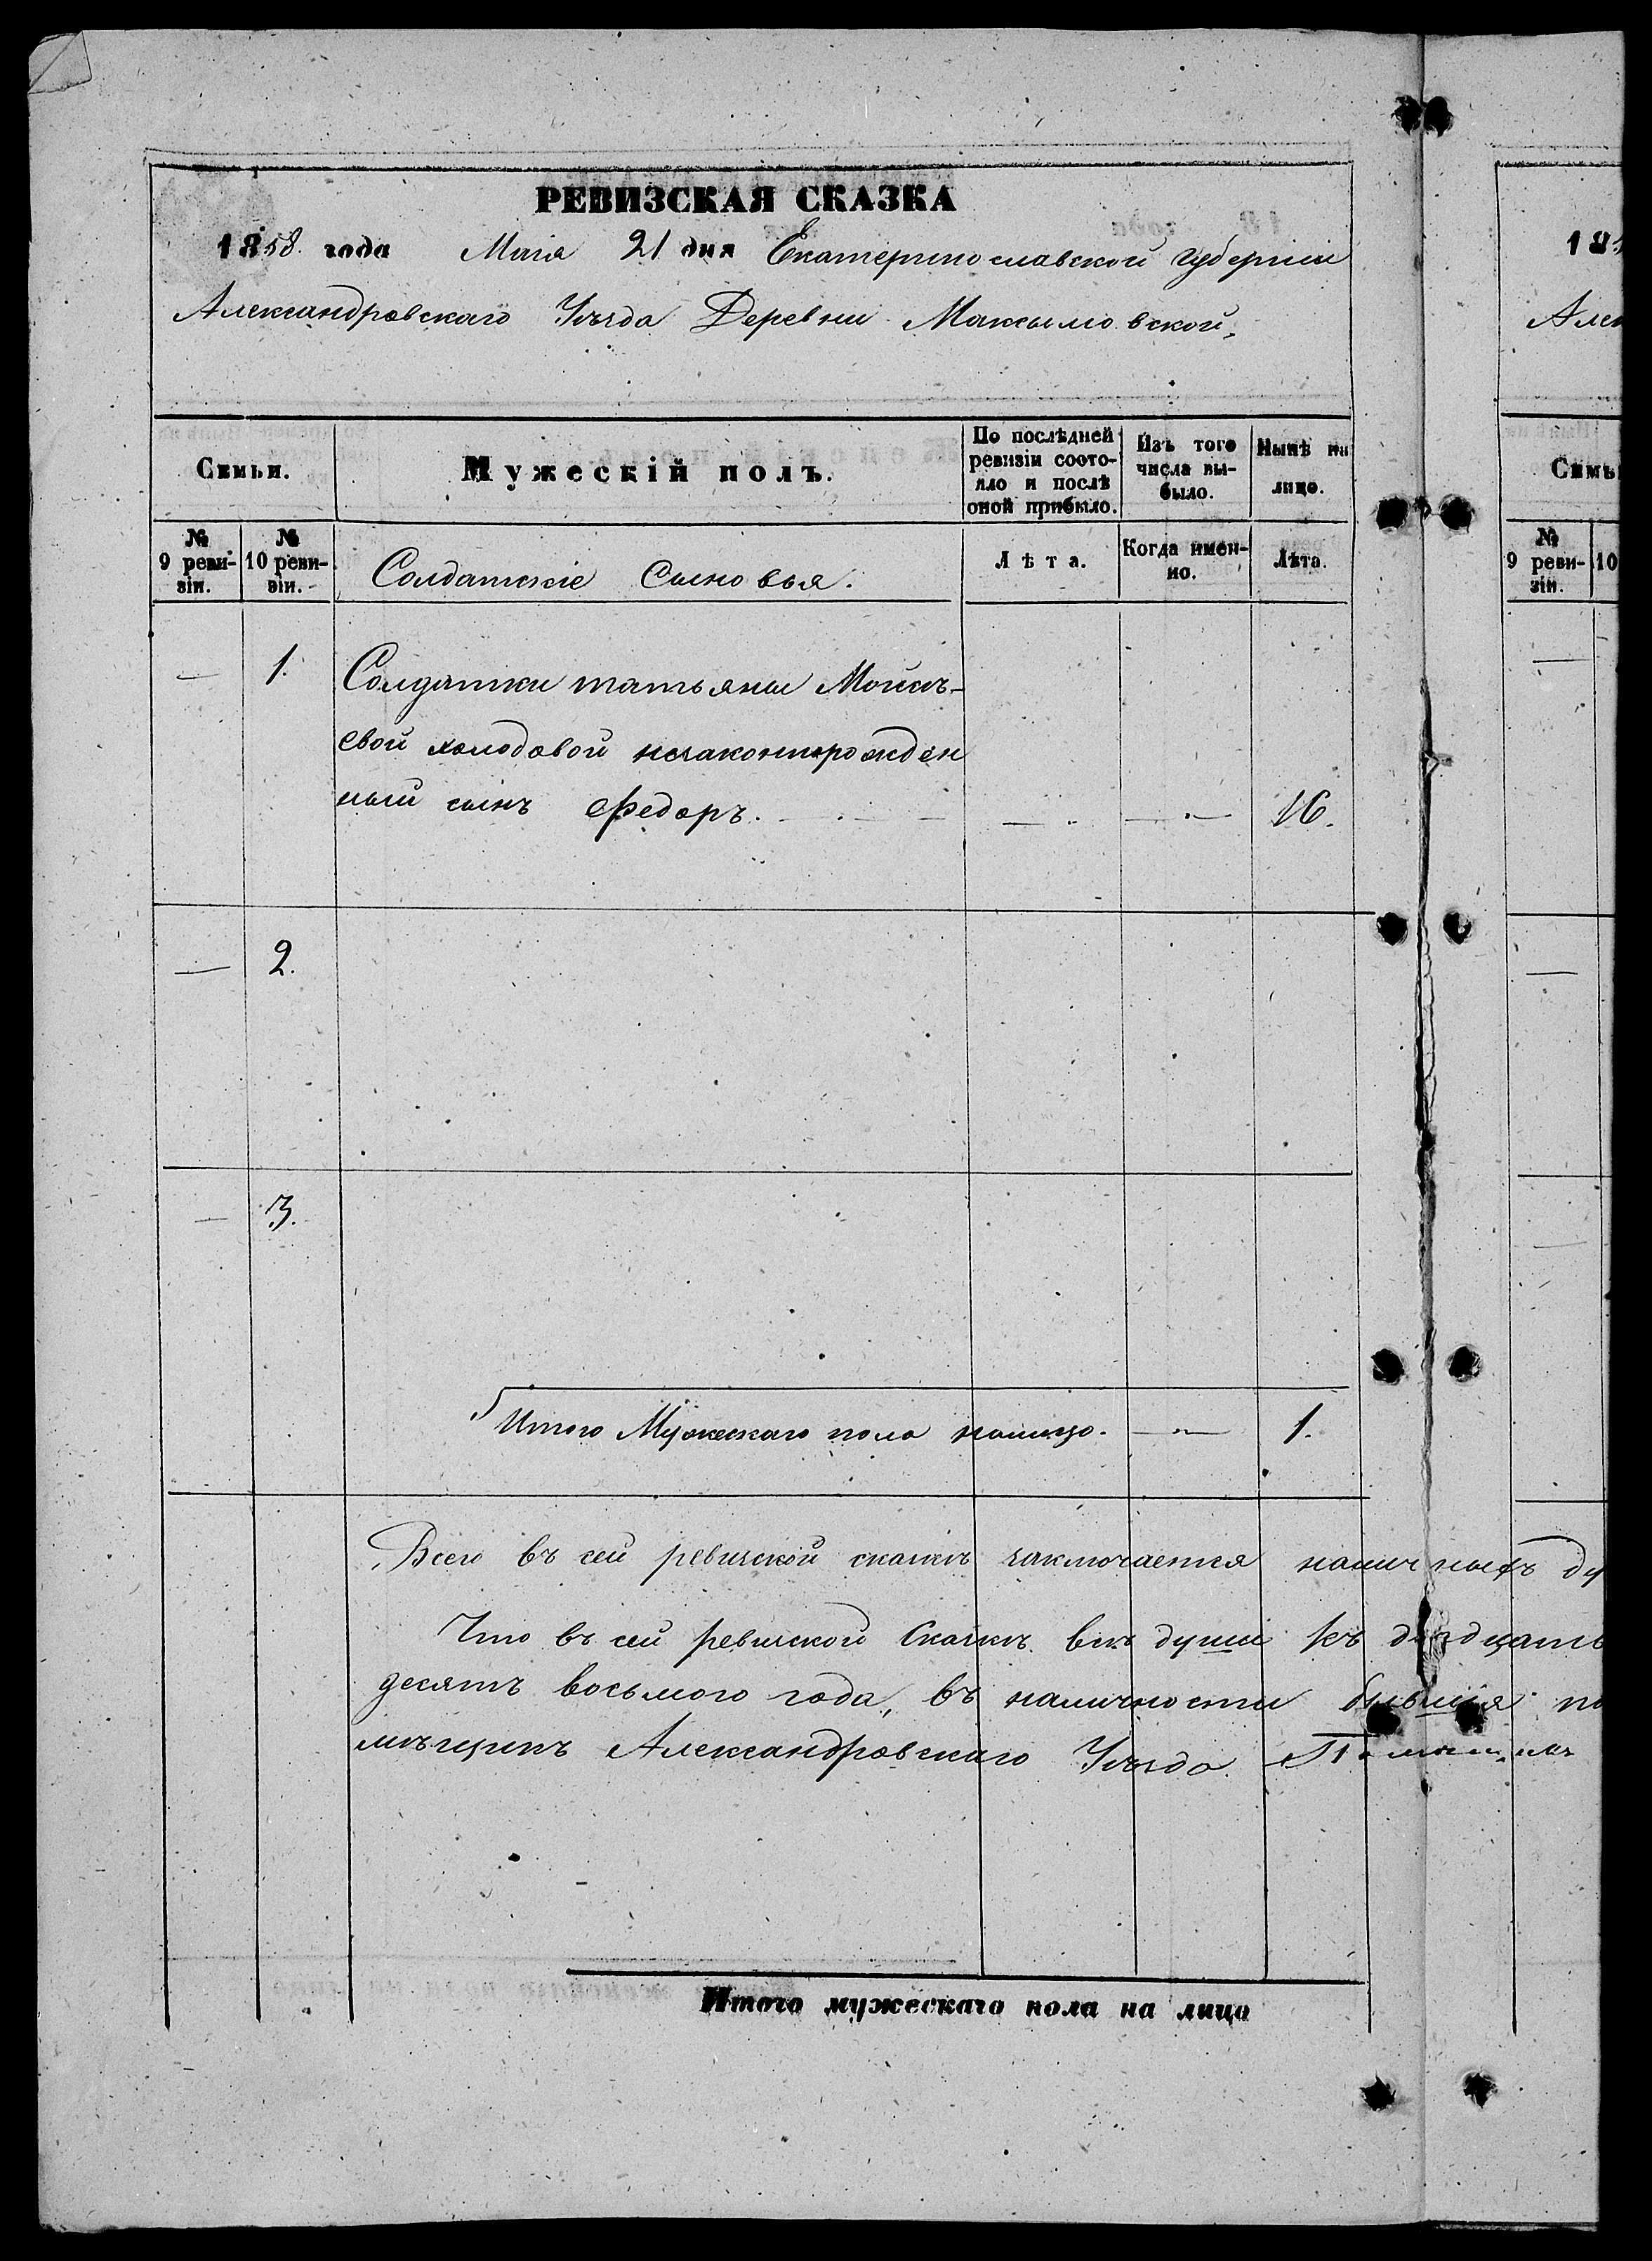 РЕВИЗСКАЯ СКАЗКА
1858. года Маія 21 дня Екатеринославской губерніи
Александровскаго Уѣзда Деревни Максымовской,
Семьи.
Мужескій полъ.
По послѣдней ревизіи состояло и послѣ оной прибыло.
Изъ того числа выбыло.
Нынѣ на лицо.
№ 9 ревизіи.
№ 10 ревизіи.
Солдатскіе Сыновья.
Лѣта.
Когда именно.
Лѣта.
— 1. Солдатки татьяны Моисѣ-
евой холодовой незаконнорожден
ный сынъ Федоръ. — . — — " — " — 16.
— 2.
— 3.
Итого Мужескаго пола налицо. — " — 1.
Всего въ сей ревизской сказкѣ заключается наличныхъ ду
Что въ сей ревизской Сказкѣ всѣ души къ двадцать
десятъ восьмого года, въ наличности бывшія по
мѣщикъ Александровскаго Уѣзда
Итого мужескаго пола на лицо
181
Алек
Семь
№ 9 ревизіи.
10
—
—
—